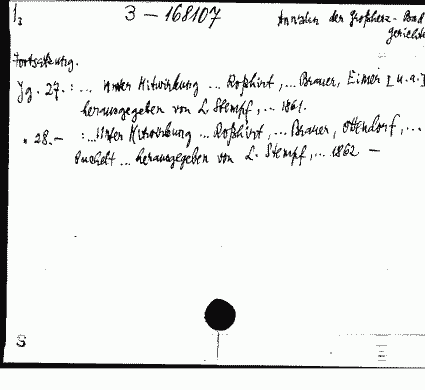 1₃ 3 - 168107 Annalen der Großherz. Bad
Gerichte
Fortsetzung.
Jg. 27. : ... Unter Mitwirkung ... Roßhirt, ... Brauer, Eimer [u.a.]
herausgegeben von L. Stempf, ... 1861.
" 28. - : ... Unter Mitwirkung ... Roßhirt, ... Brauer, Ottendorf, ...
Puchelt ... herausgegeben von L. Stempf, ... 1862 -
S